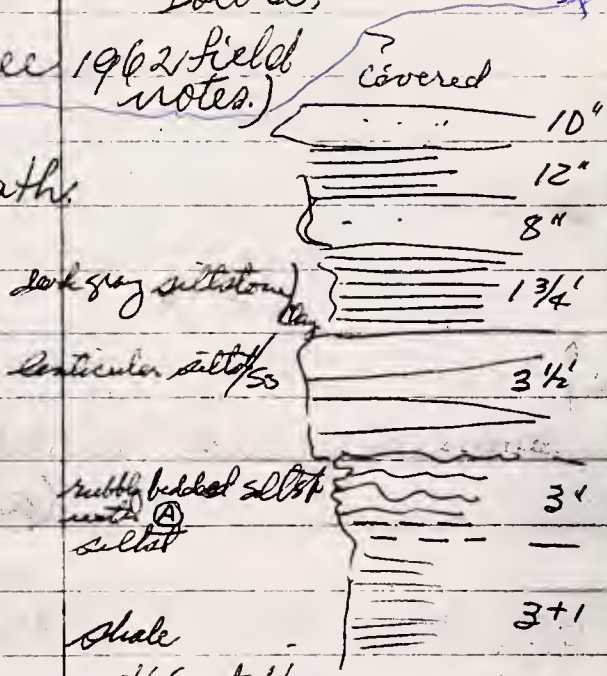 1962 field
notes.)
covered
10"
12"
8"
dark gray siltstone
clay
1 3/4'
lenticular siltst/ss
3 1/2'
rubbly bedded siltst
3'
Ⓐ
siltst
shale
3+1